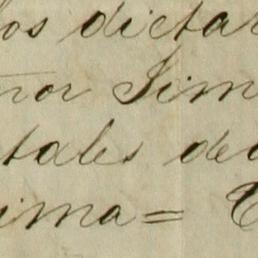 los dictar
ñor Sim
tales de
ima= C